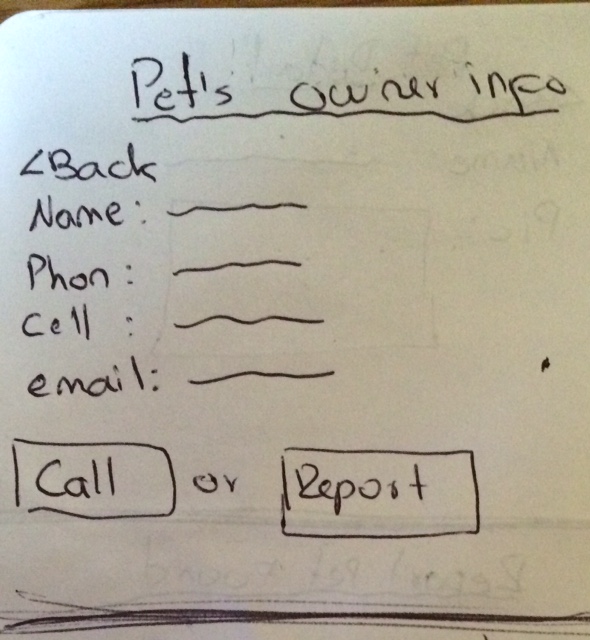 Pet's owner info
<Back
Name:
Phon:
Cell :
email:
Call or Report